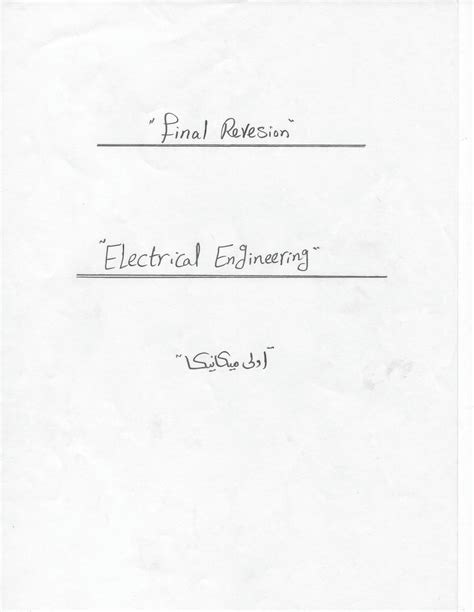 "Final Revesion"
"Electrical Engineering"
"اولى ميكانيكا"